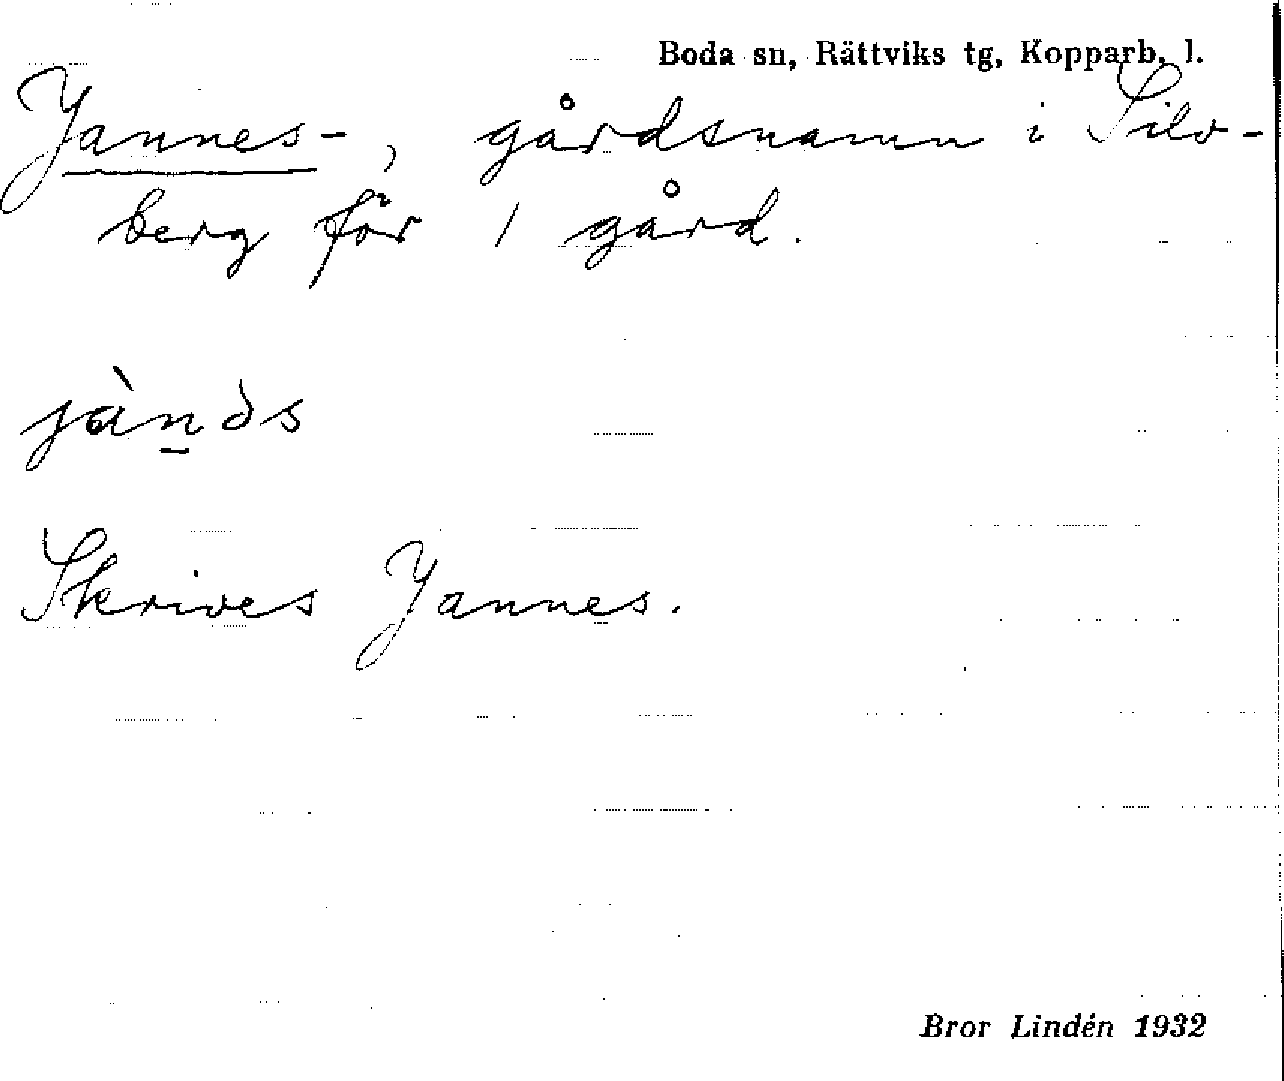 Boda sn, Rättviks tg, Kopparb. l.
Jannes-, gårdsnamn i Silv-
berg för 1 gård.
jàn̲əs
Skrives Jannes.
Bror Lindén 1932